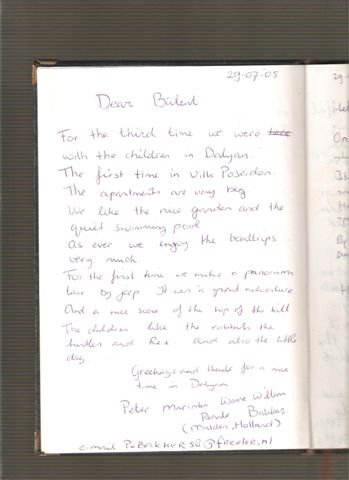 29-07-05
Dear Bülent
For the third time we were here
with the children in Dalyan.
The first time in Villa Poseidon.
The apartments are very big
We like the nice garden and the
quiet swimming pool
As ever we enjoy the boattrips
very much.
For the first time we make a panorama
tour by jeep It was a great adventure
And a nice of the top of the hill
The children like the rabbits, the
turtles and Rex and also the little
dog
Greetings and thanks for a nice
time in Dalyan
Peter Marinka Willem
Bakker
(Malden, Holland)
29-